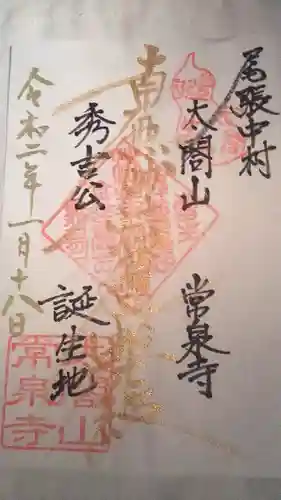 尾張中村
太閤山
常泉寺
南無妙法蓮華経
秀吉公
誕生地
令和二年一月十八日
太閤山
常泉寺